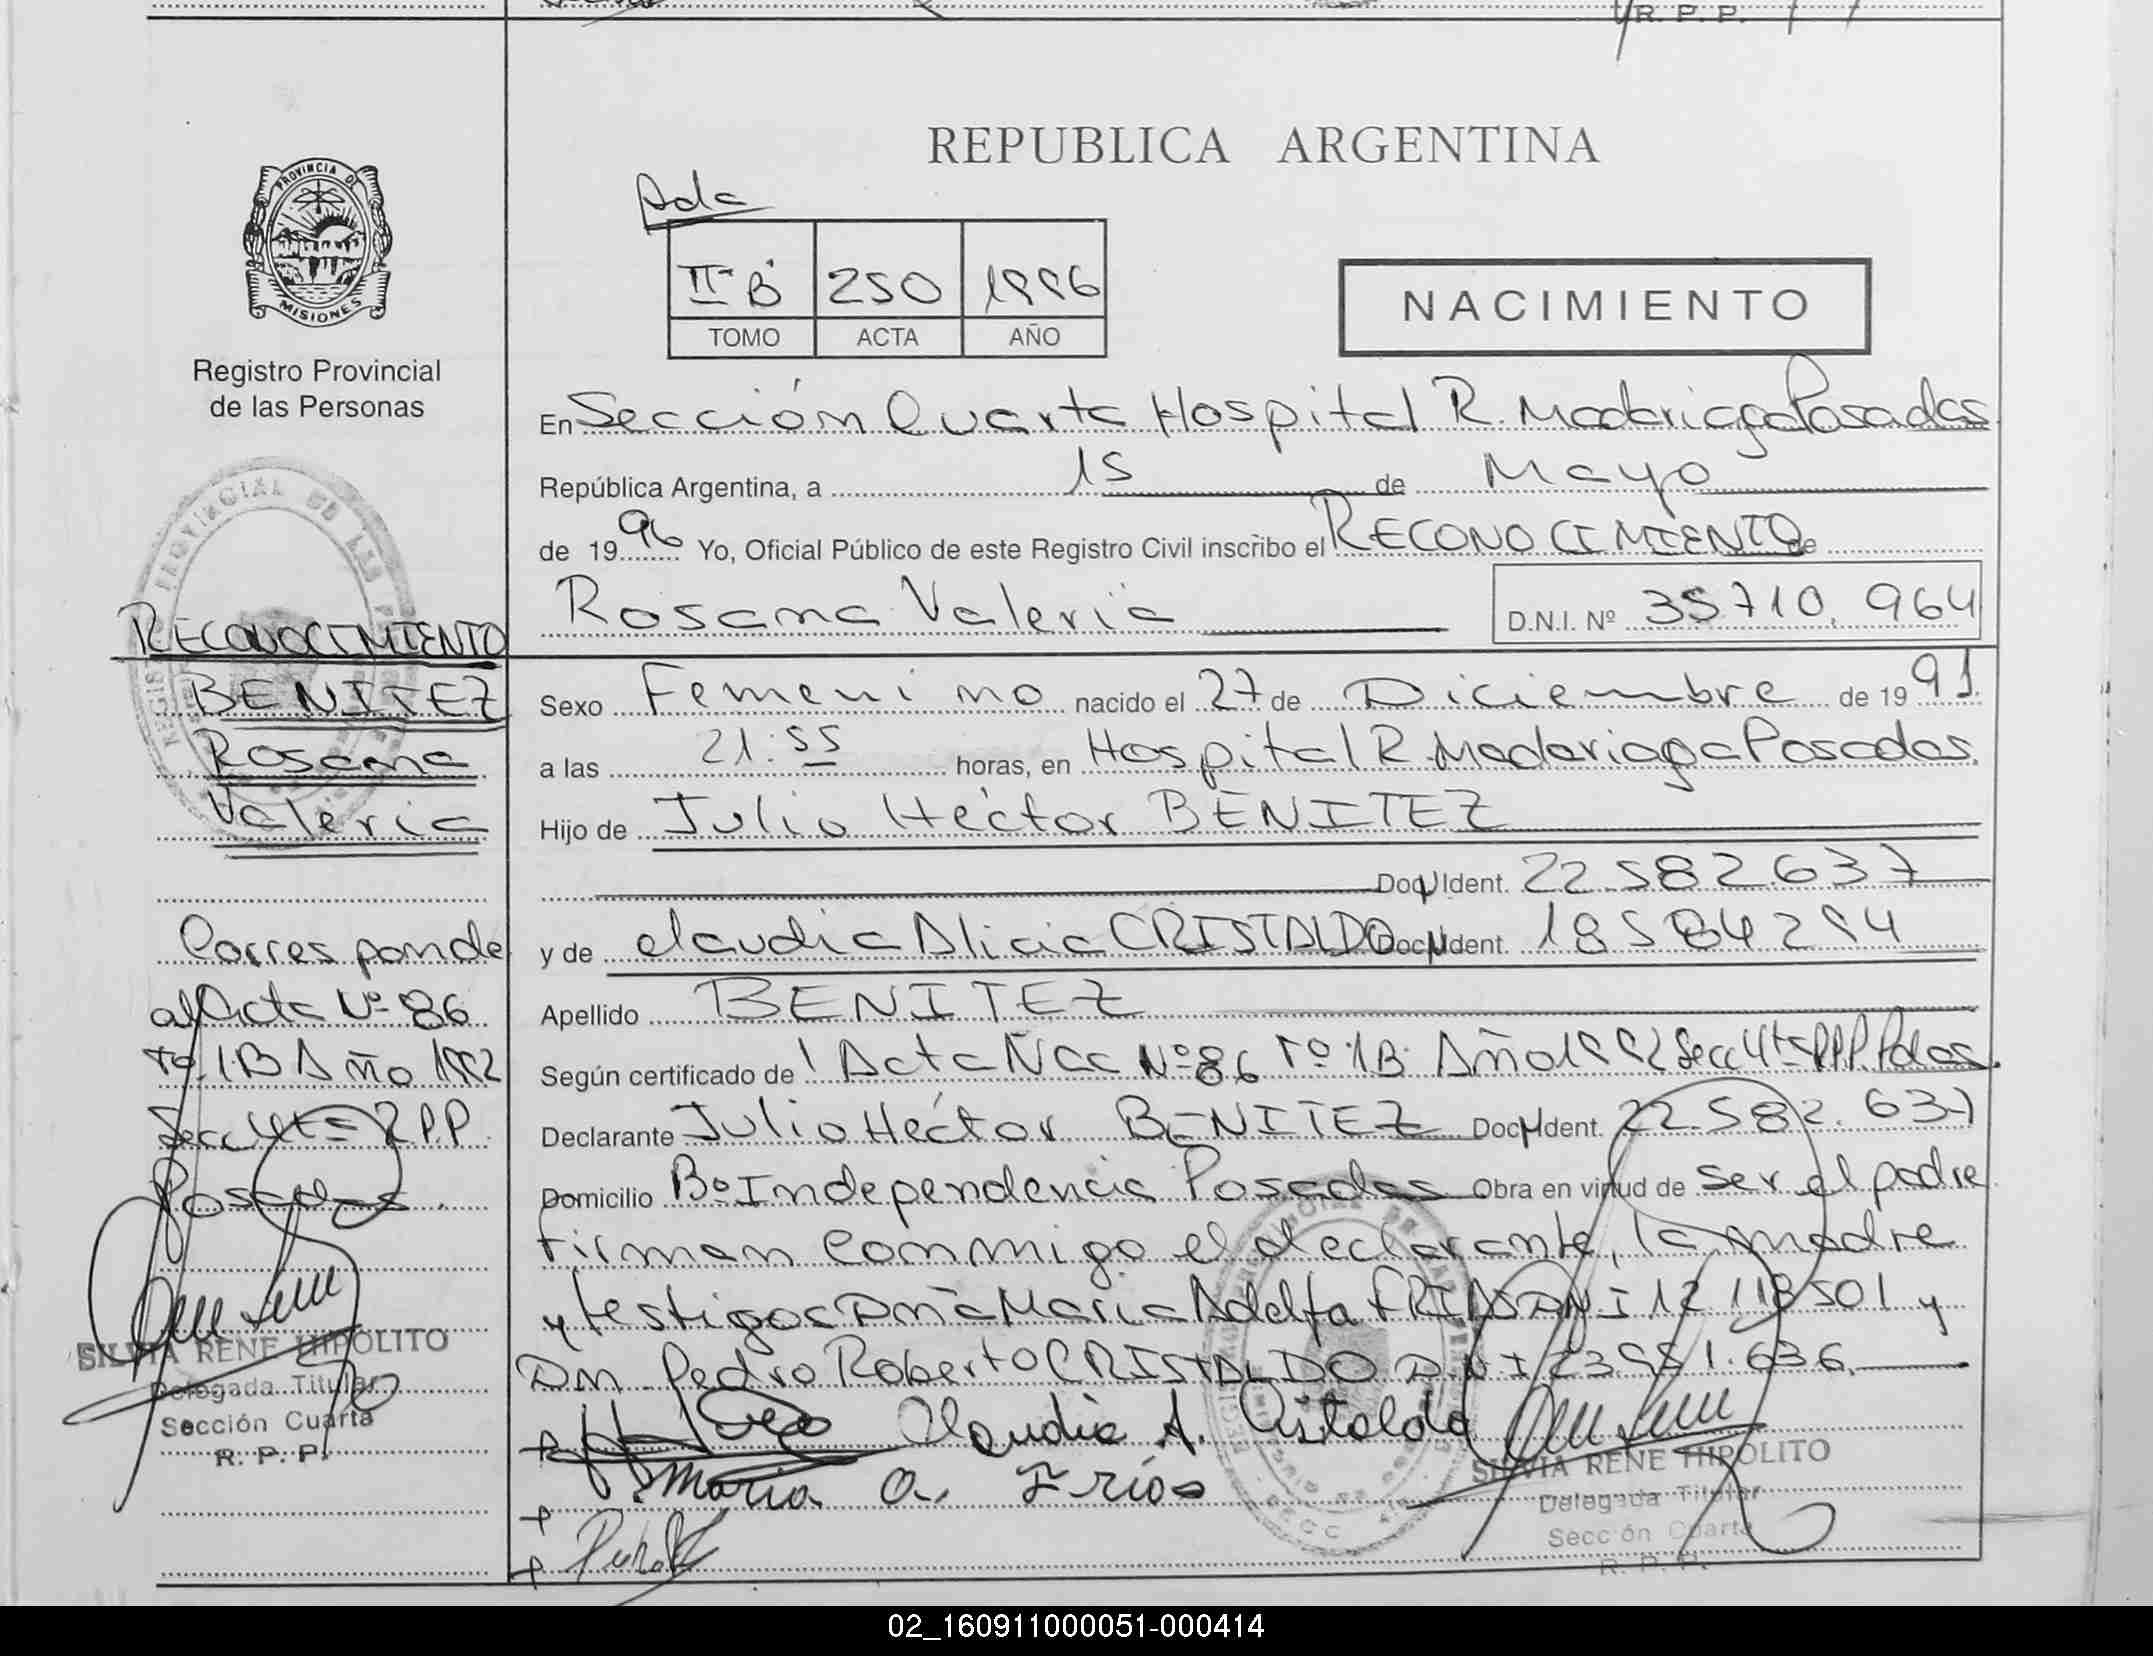 R. P. P.
PROVINCIA DE
MISIONES
Registro Provincial
de las Personas
REPUBLICA ARGENTINA
II "B" 250 1996
TOMO ACTA AÑO
NACIMIENTO
En Sección Cuarta Hospital R. Madariaga Posadas
República Argentina, a 15 de Mayo
de 1996 Yo, Oficial Público de este Registro Civil inscribo el RECONOCIMIENTO de
Rosana Valeria D.N.I. Nº 35710.964
Sexo Femenino nacido el 27 de Diciembre de 1991
a las 21:55 horas, en Hospital R. Madariaga Posadas.
Hijo de Julio Héctor BENITEZ
Doc. Ident. 22.582.637
y de Claudia Alicia CRISTALDO Doc. Ident. 18584294
Apellido BENITEZ
Según certificado de Acta Nac Nº 86 Tº 1B Año 1992 Secc 4ta RPP. Pdas.
Declarante Julio Héctor BENITEZ Doc. Ident. 22.582.637
Domicilio Bº Independencia Posadas Obra en virtud de ser el padre
firman conmigo el declarante, la madre
y testigos Dña Maria Adelfa FRIAS DNI 12.118.501 y
Dn Pedro Roberto CRISTALDO D.N.I 23.951.636.
Claudia A. Cristaldo
Maria A. Frías
SILVIA RENE HIPOLITO
Delegada Titular
Sección Cuarta
R. P. P.
RECONOCIMIENTO
BENITEZ
Rosana
Valeria
Corresponde
al Acta Nº 86
Tº 1B Año 1992
Secc 4ta RPP
Posadas.
SILVIA RENE HIPOLITO
Delegada Titular
Sección Cuarta
R. P. P.
02_160911000051-000414